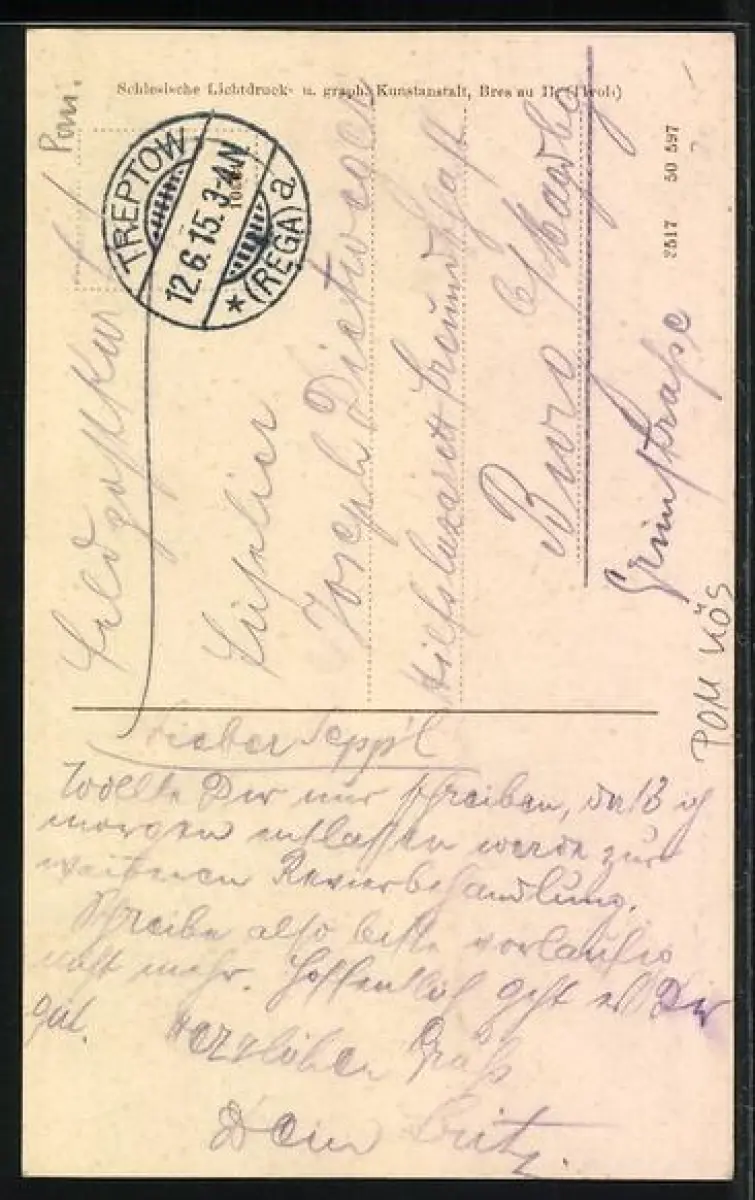 Schlesische Lichtdruck- u. graph. Kunstanstalt, Breslau II (Tirol)
2517 50 597
Pom.
TREPTOW
12.6.15. 3-4N
* (REGA) a
Feldpostkarte
Füsilier
Joseph
Hilfslazarett Freundschaft
Burg b/Magdbg
Grünstraße
POM KÖS
Lieber Sepp'l
Wollte Dir nur schreiben, daß ich
morgen entlassen werde zur
weiteren Revierbehandlung.
Schreibe also bitte vorläufig
nicht mehr. Hoffentlich geht es Dir
gut. Herzlichen Gruß
Dein Fritz.